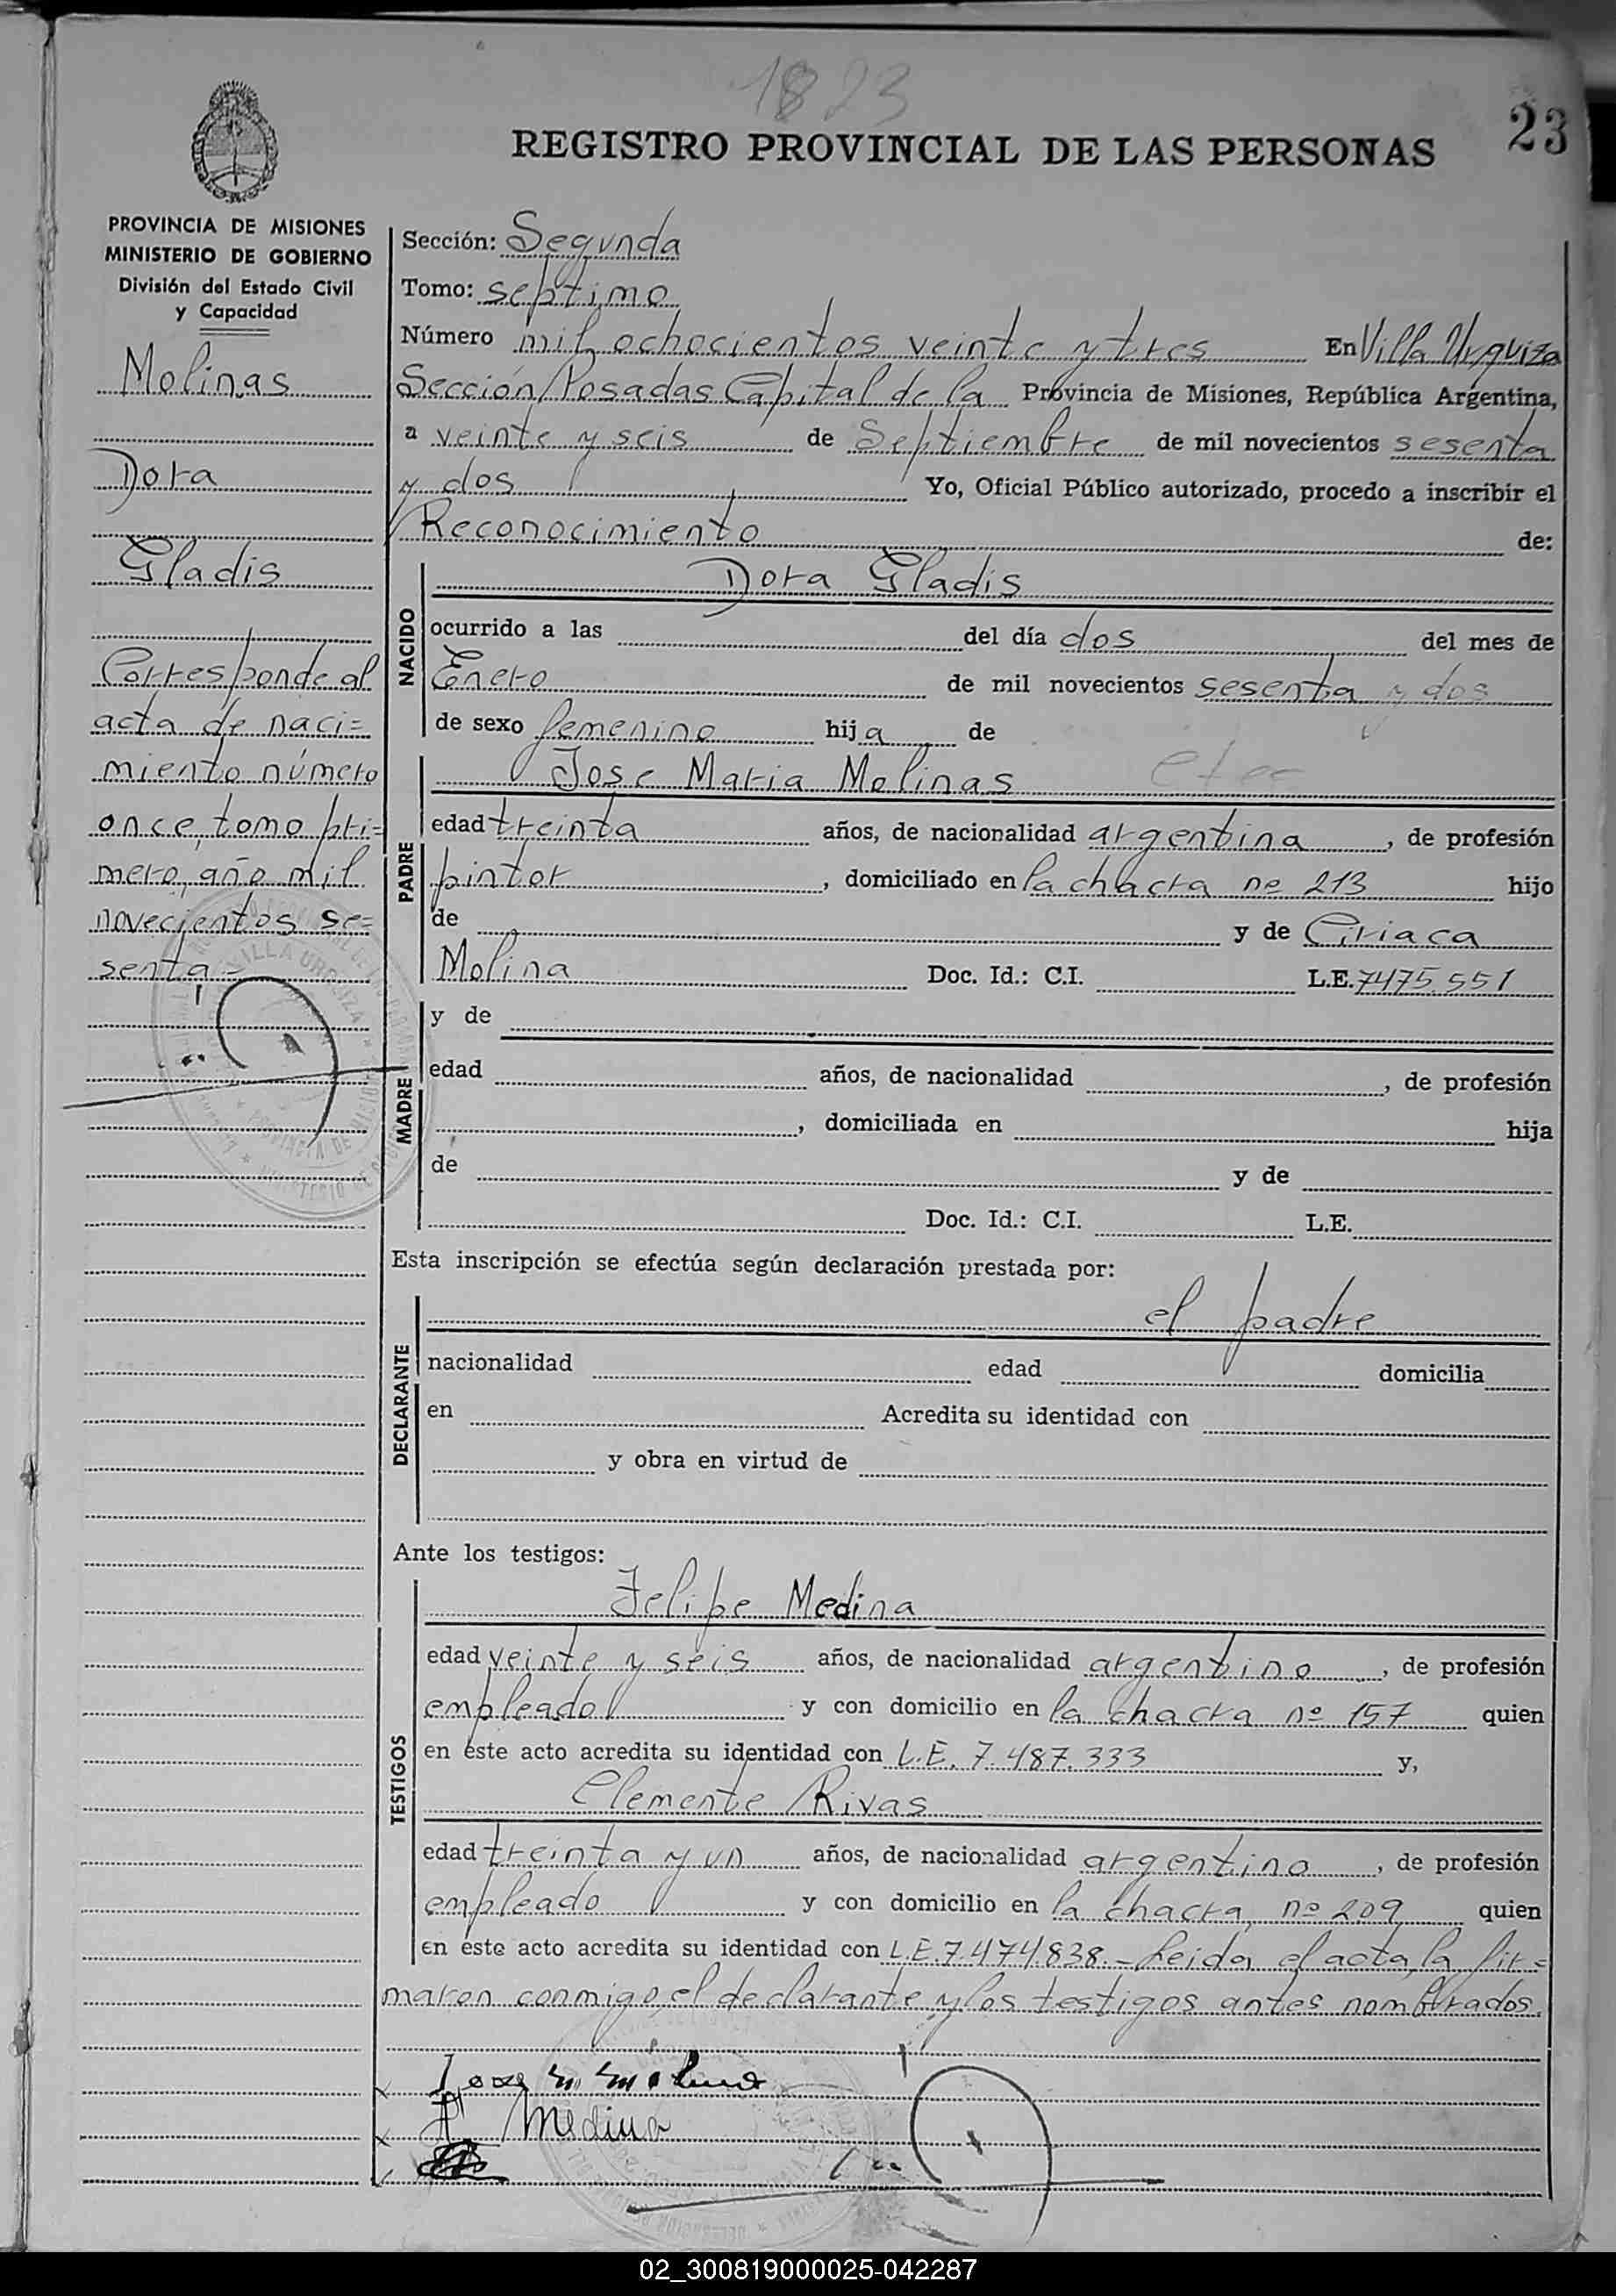 1823
23
REGISTRO PROVINCIAL DE LAS PERSONAS
PROVINCIA DE MISIONES
MINISTERIO DE GOBIERNO
División del Estado Civil
y Capacidad
Molinas
Dora
Gladis
Corresponde al
acta de naci=
miento número
once, tomo pri=
mero, año mil
novecientos se=
senta
Sección: Segunda
Tomo: septimo
Número mil ochocientos veinte y tres En Villa Urquiza
Sección Posadas Capital de la Provincia de Misiones, República Argentina,
a veinte y seis de Septiembre de mil novecientos sesenta
y dos Yo, Oficial Público autorizado, procedo a inscribir el
Reconocimiento de:
NACIDO
Dora Gladis
ocurrido a las del día dos del mes de
Enero de mil novecientos sesenta y dos
de sexo femenino hija de
PADRE
Jose Maria Molinas
edad treinta años, de nacionalidad argentina, de profesión
pintor, domiciliado en la chacra nº 213 hijo
de y de Ciriaca
Molina Doc. Id.: C.I. L.E. 7475.551
MADRE
y de
edad años, de nacionalidad , de profesión
, domiciliada en hija
de y de
Doc. Id.: C.I. L.E.
Esta inscripción se efectúa según declaración prestada por:
DECLARANTE
el padre
nacionalidad edad domicilia
en Acredita su identidad con
y obra en virtud de
Ante los testigos:
TESTIGOS
Felipe Medina
edad veinte y seis años, de nacionalidad argentino, de profesión
empleado y con domicilio en la chacra nº 157 quien
en este acto acredita su identidad con L.E. 7.487.333 y,
Clemente Rivas
edad treinta y un años, de nacionalidad argentino, de profesión
empleado y con domicilio en la chacra nº 209 quien
en este acto acredita su identidad con L.E. 7.474.838.- Leida el acta, la fir=
maron conmigo, el declarante y los testigos antes nombrados.
Medina
02_300819000025-042287